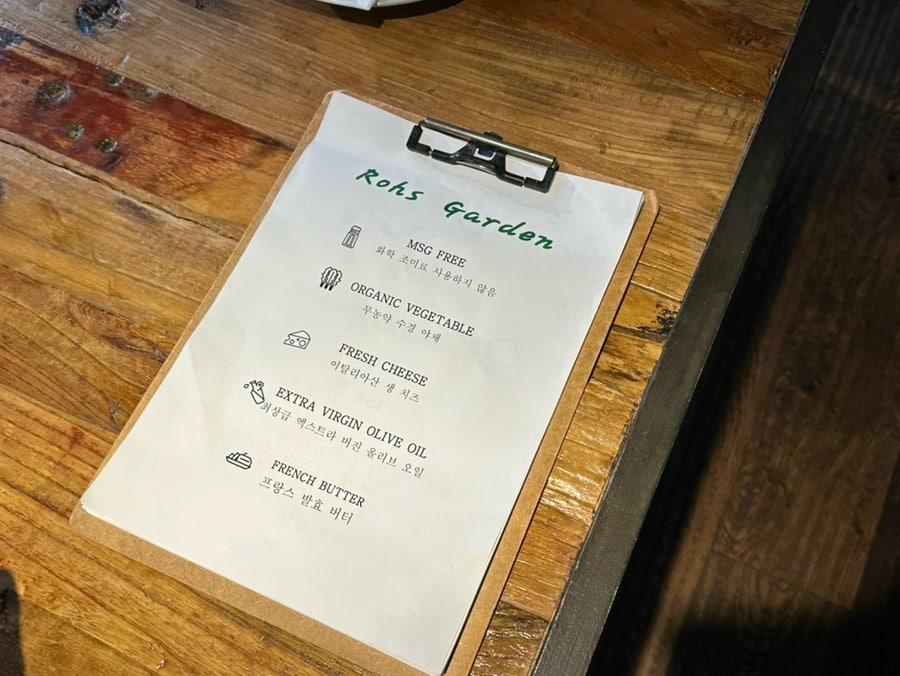 Rohs Garden
MSG FREE
화학 조미료 사용하지 않음
ORGANIC VEGETABLE
무농약 수경 야채
FRESH CHEESE
이탈리아산 생 치즈
EXTRA VIRGIN OLIVE OIL
최상급 엑스트라 버진 올리브 오일
FRENCH BUTTER
프랑스 발효 버터